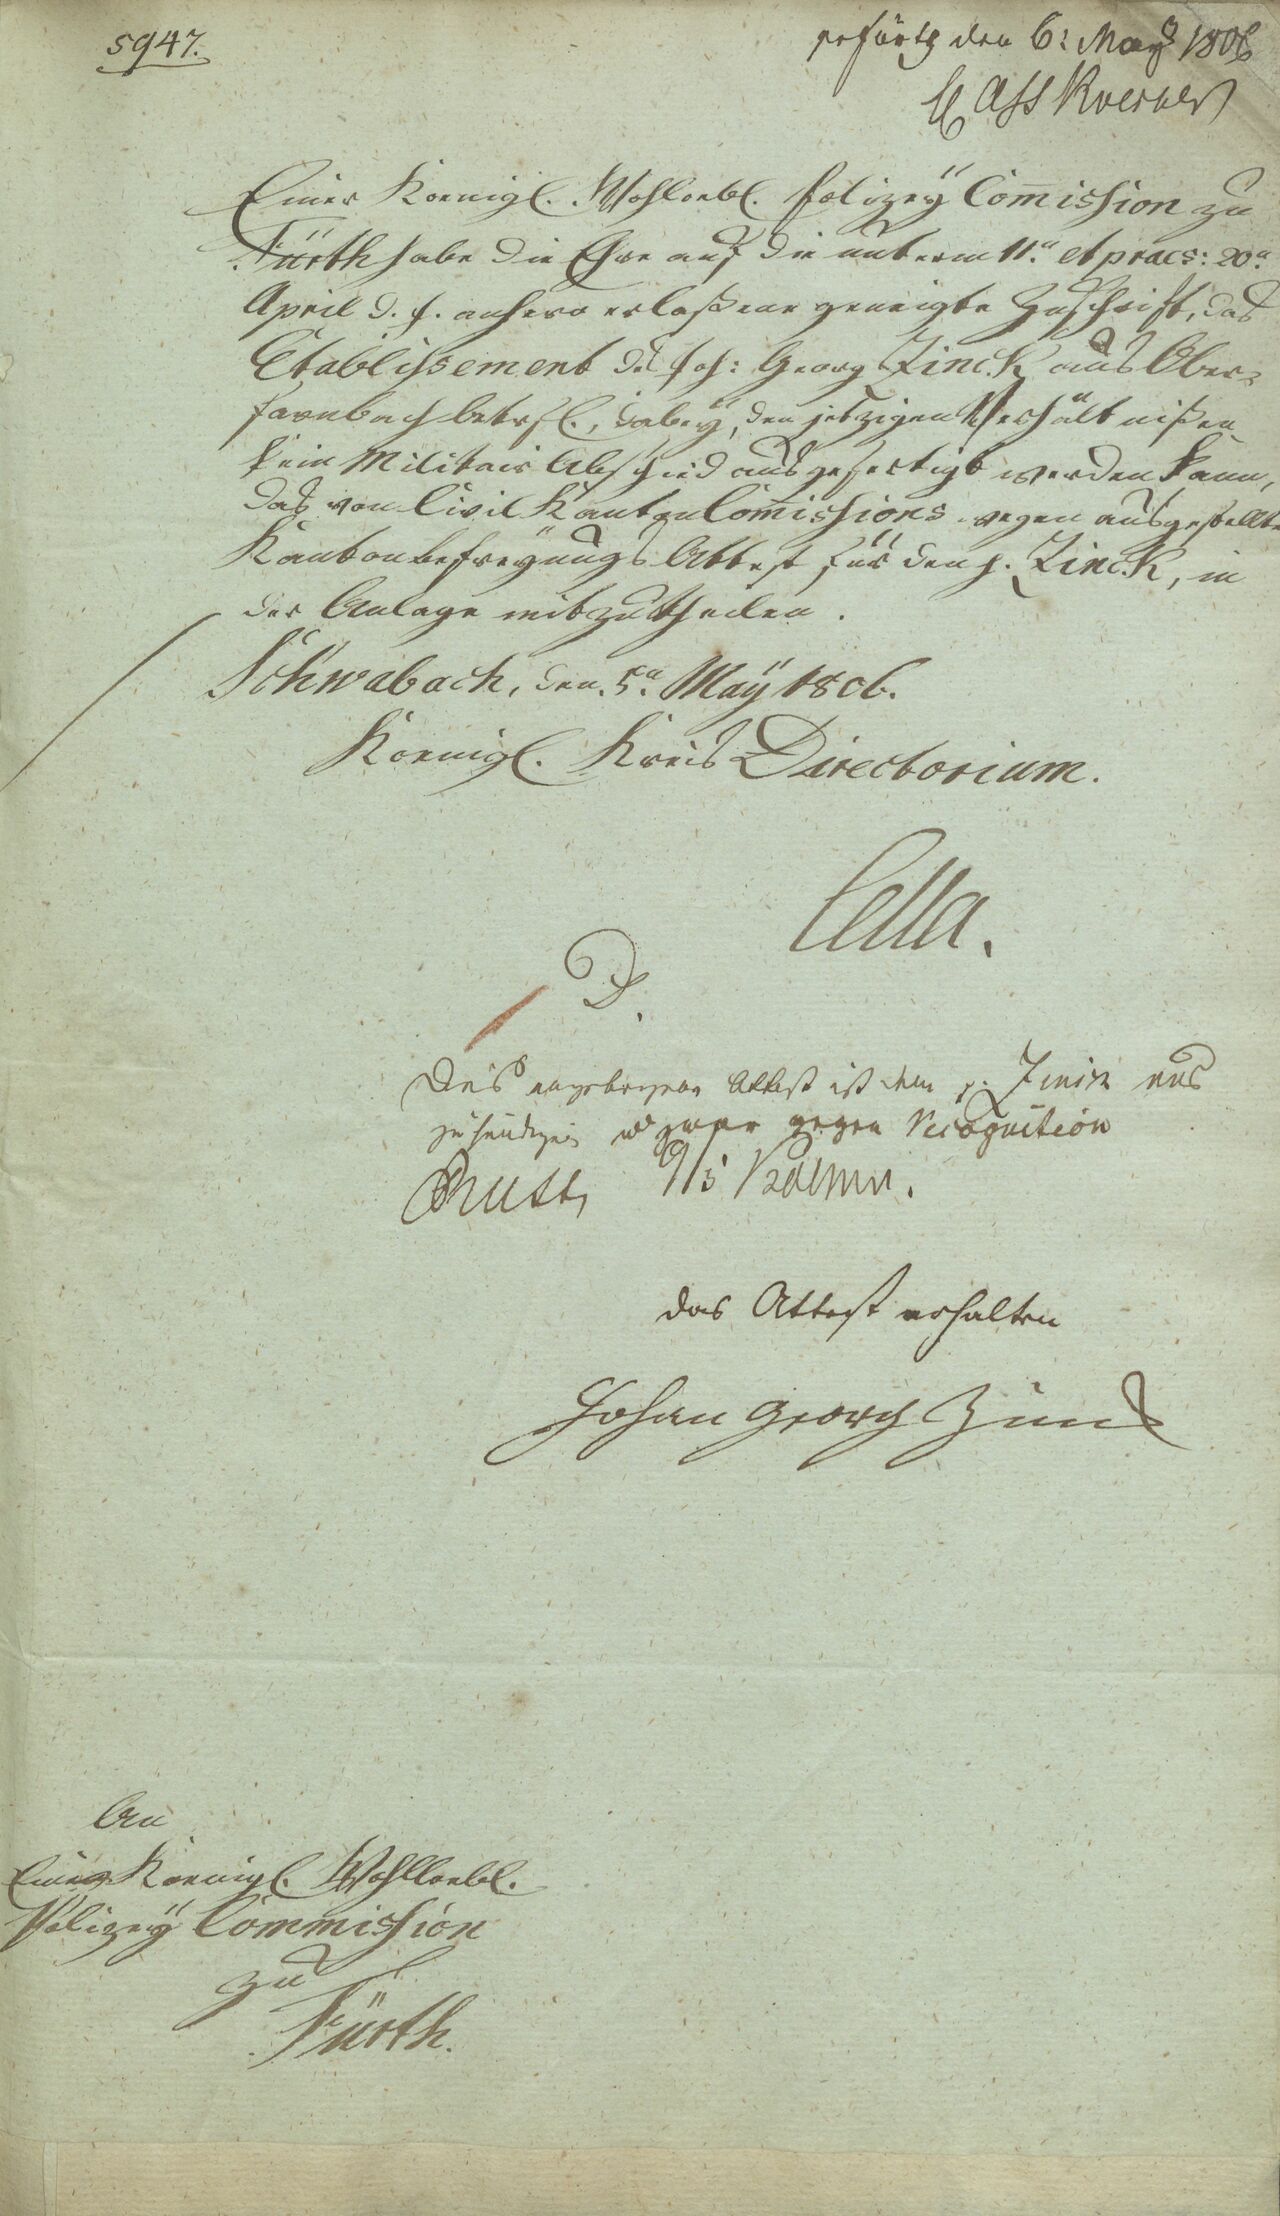 5947.
den 6: May 1806
Einer Koenigl. Wohlloebl. Polizey Comission zu
Fürth habe die Ehre auf die unterm 11.n et praes: 20.n
April d. J. anhero erlaßene geneigte Zuschrift, das
Etablissement des Joh: Georg Zinck aus Ober-
farnbach betrfl., dabey, den jetzigen Verhältnißen
kein Militair Abschied ausgefertigt werden kann,
das von Civil Kanton Comissions wegen ausgestellte
Kantonbefreyungs Attest für den p. Zinck, in
der Anlage mitzutheilen.
Schwabach, den 5.n May 1806.
Koenigl. Kreis Directorium.
Cella.
D.
Dies Attest ist dem p. Zinck aus
zuhändigen u zwar gegen Recognition
das Attest erhalten
Johan Georg Zinck
An
Eine Koenigl. Wohlloebl.
Polizey Commission
zu
Fürth.